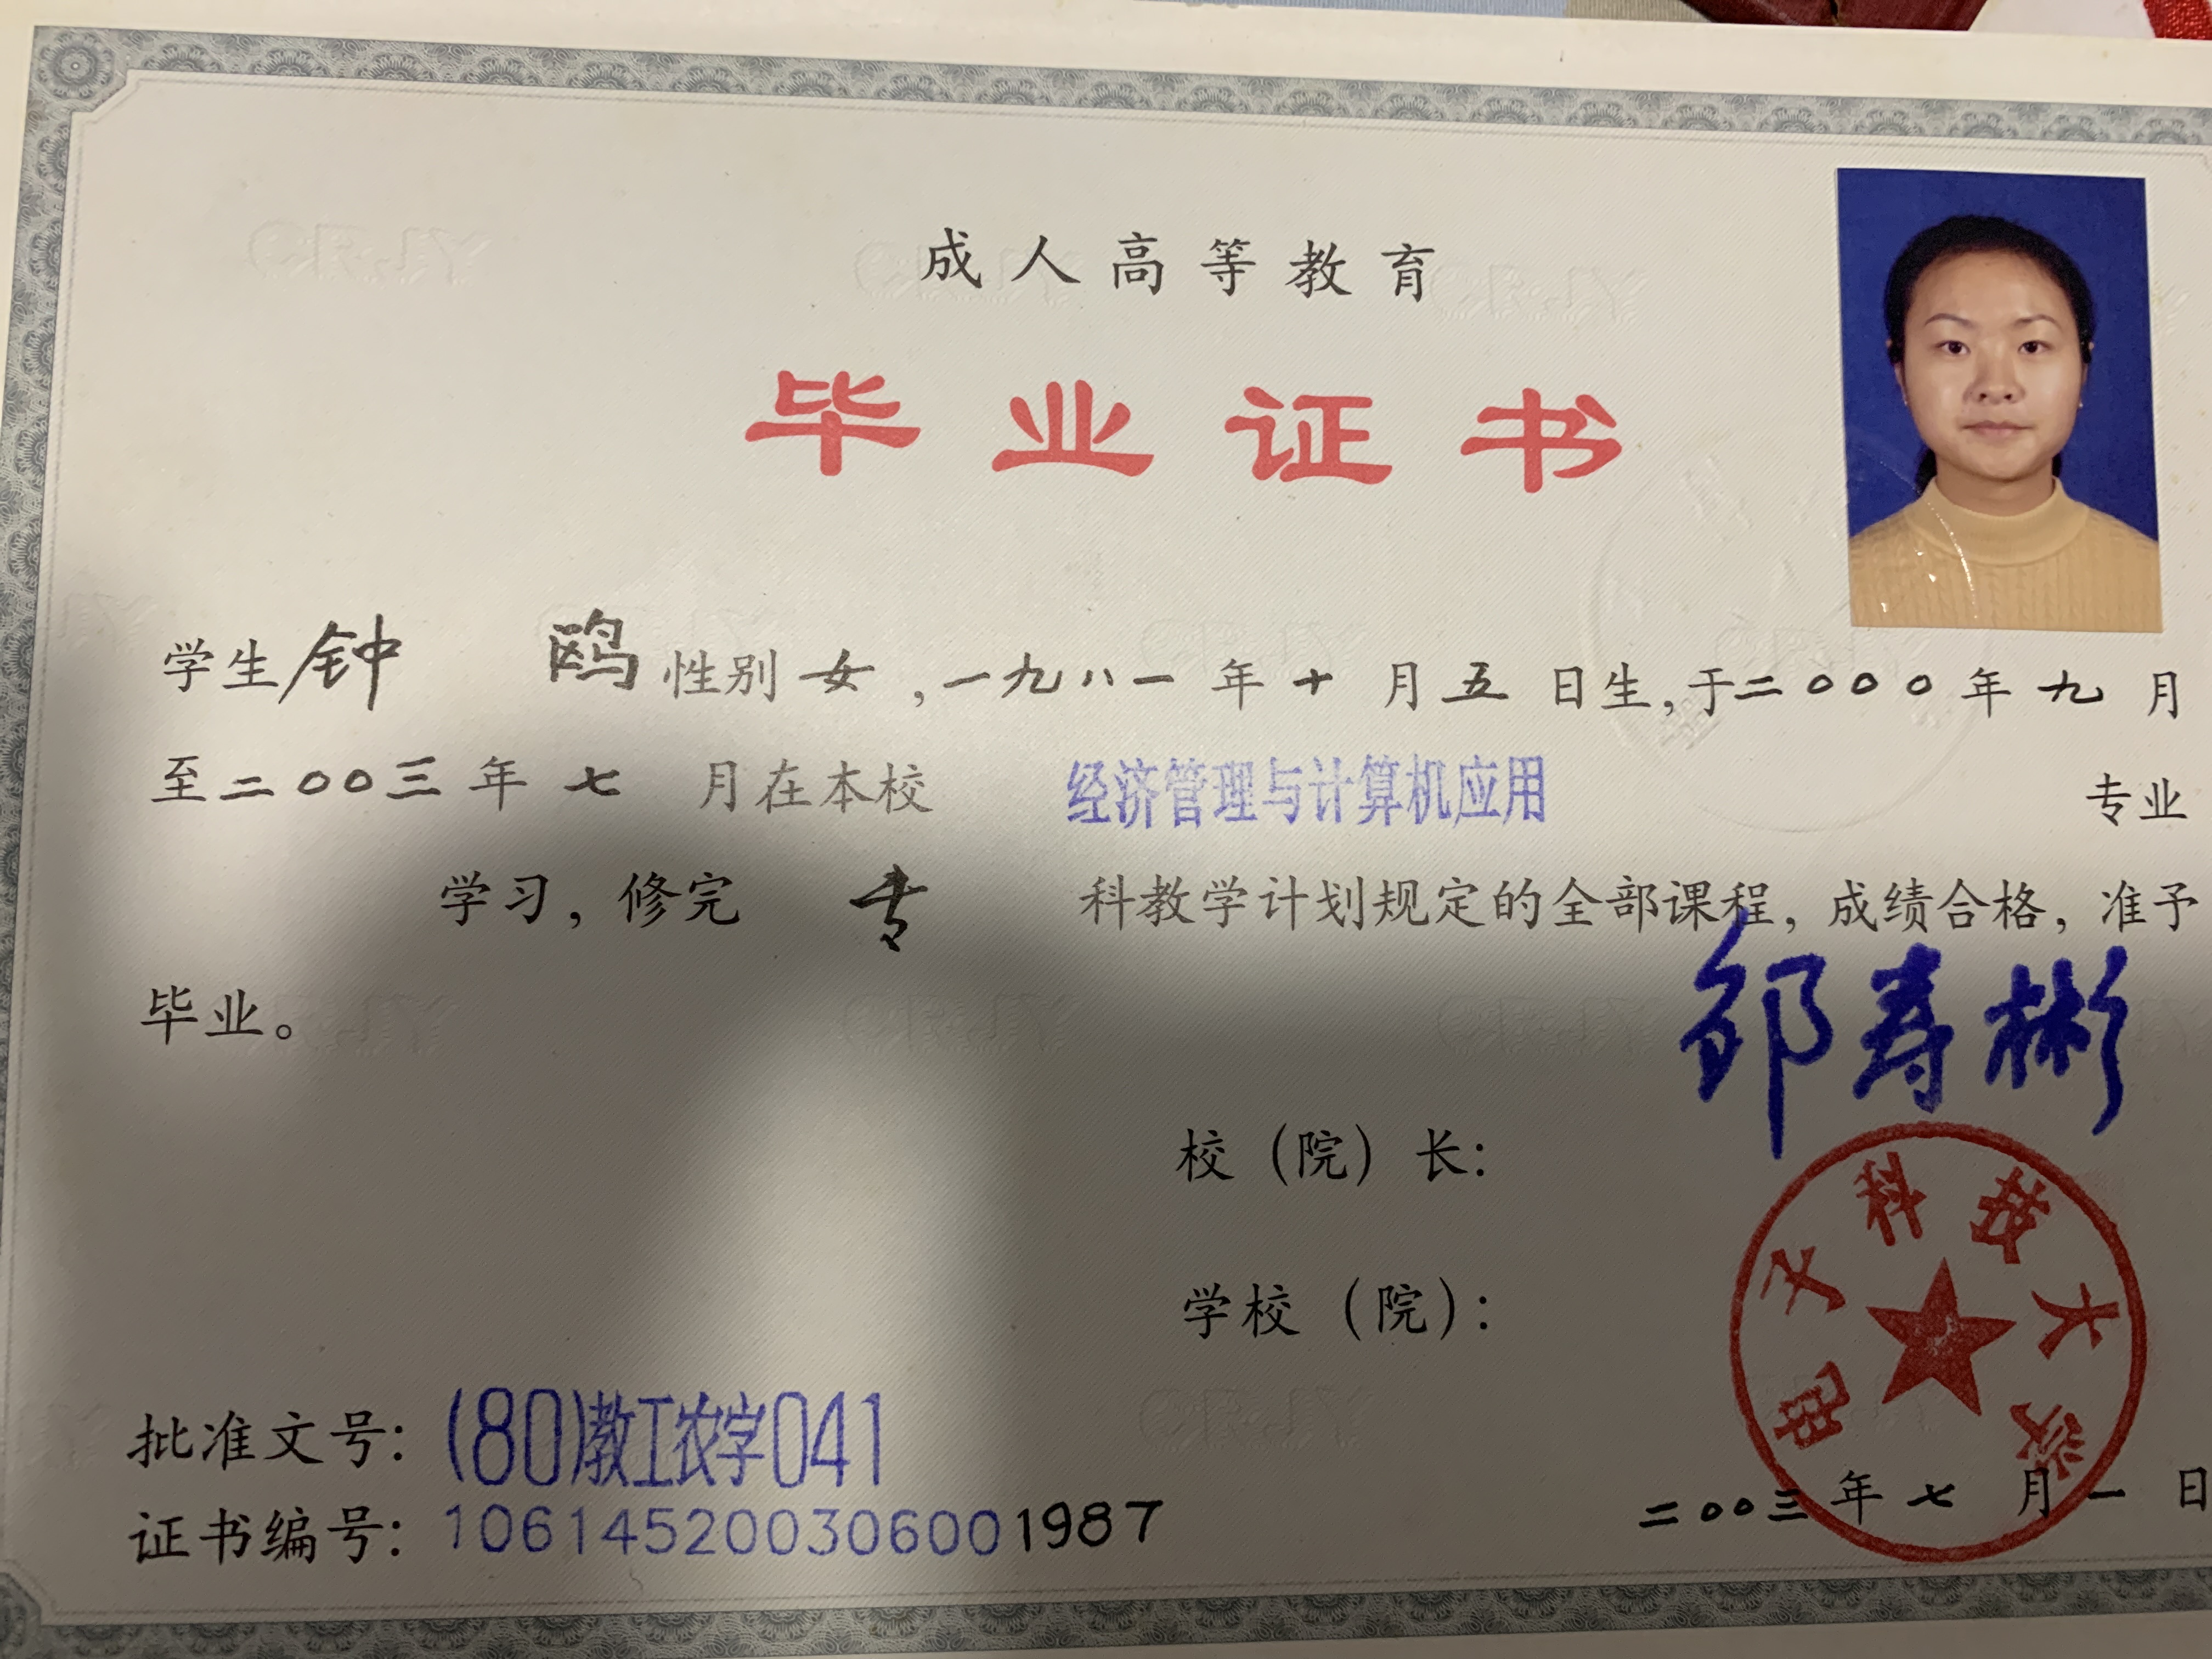 成人高等教育
毕业证书
学生钟 鸥性别女，一九八一年十月五日生，于二〇〇〇年九月
至二〇〇三年七月在本校 经济管理与计算机应用 专业
学习，修完 专 科教学计划规定的全部课程，成绩合格，准予
毕业。
邹寿彬
校（院）长：
学校（院）：
电子科技大学
批准文号：(80)教工农字041
证书编号：106145200306001987
二〇〇三年七月一日